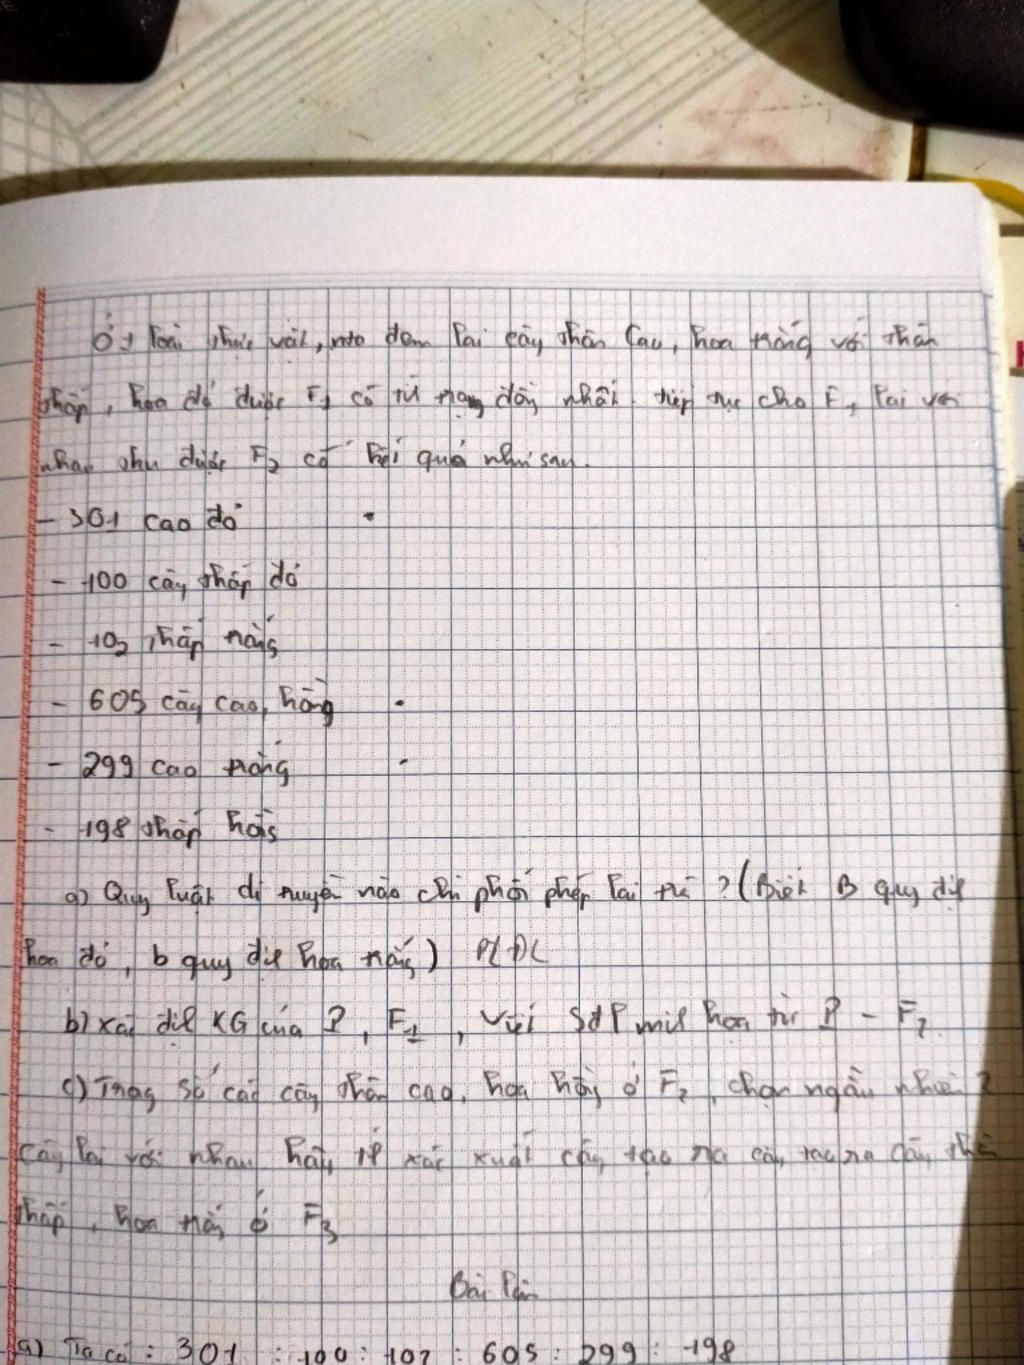 Ở 1 loài thực vật, đem lai cây thân cao, hoa trắng với thân
thấp, hoa đỏ được F1 có đồng nhất. tiếp tục cho F1 lai với
nhau thu được F2 có kết quả như sau.
- 301 cao đỏ
- 100 cây thấp đỏ
- 102 thấp trắng
- 605 cây cao, hồng
- 299 cao trắng
- 198 thấp hồng
a) Quy luật di truyền nào chi phối phép lai trên ? (Biết B quy định
hoa đỏ, b quy định hoa trắng) PLĐL
b) xác định KG của P, F1, viết SđP minh họa từ P - F2
c) Trong số các cây thân cao, hoa hồng ở F2, chọn ngẫu nhiên 2
cây lai với nhau. Hãy xác xuất cây tạo ra cây tạo ra cây thân
thấp, hoa trắng ở F3
Bài làm
a) Ta có : 301 : 100 : 102 : 605 : 299 : 198